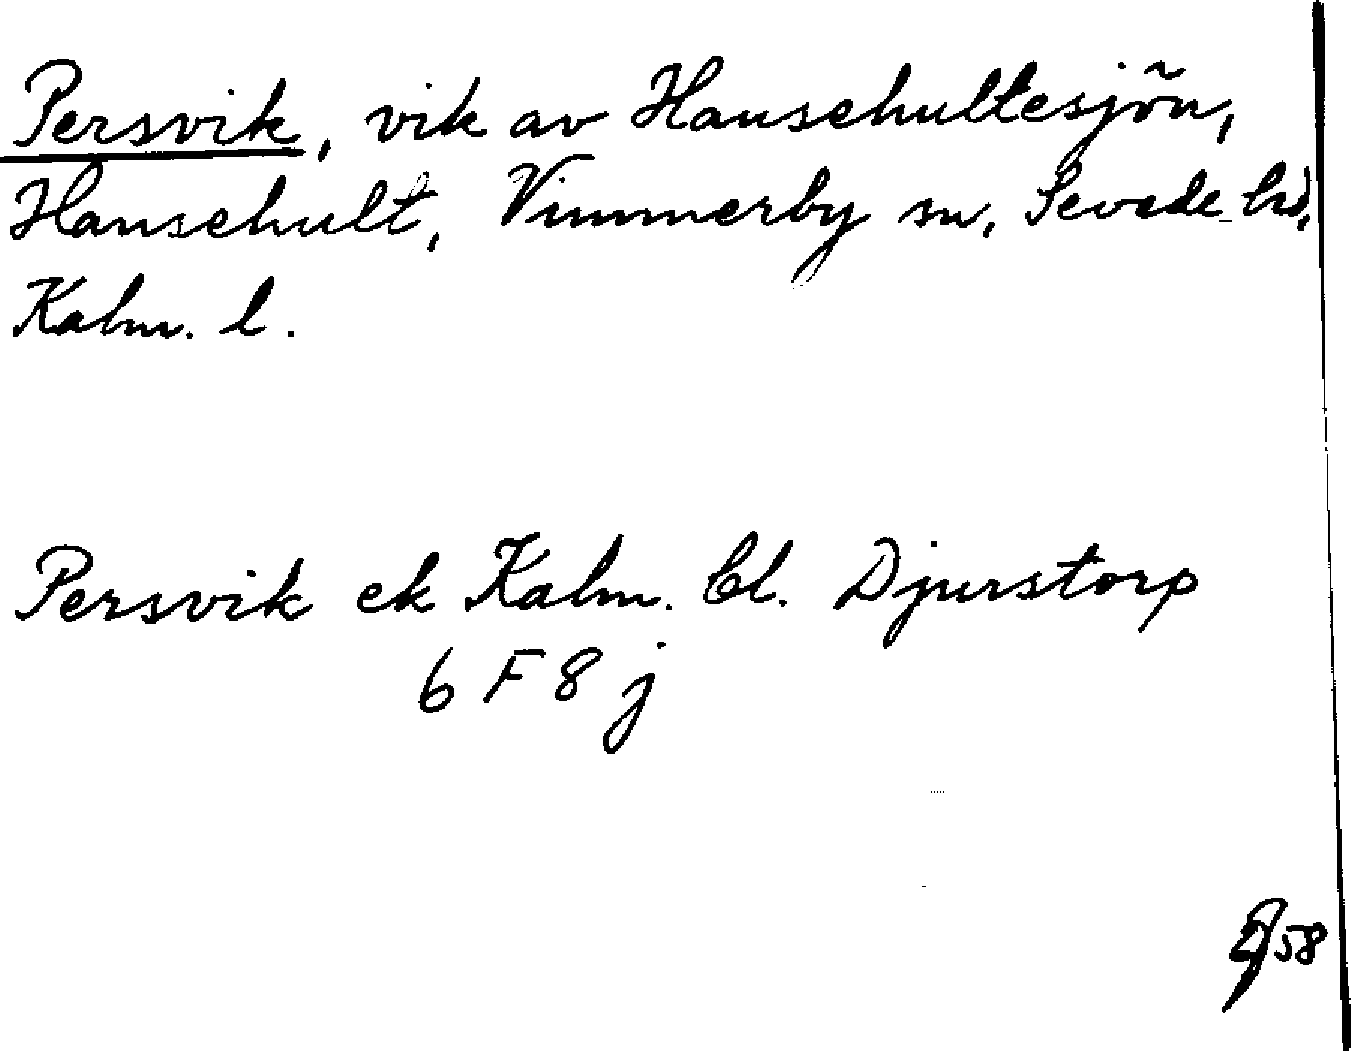 Persvik, vik av Hanschultesjön,
Hanschult, Vimmerby sn, Sevede hd,
Kalm. l.
Persvik ek Kalm. bl. Djurstorp
6 F 8 j
58